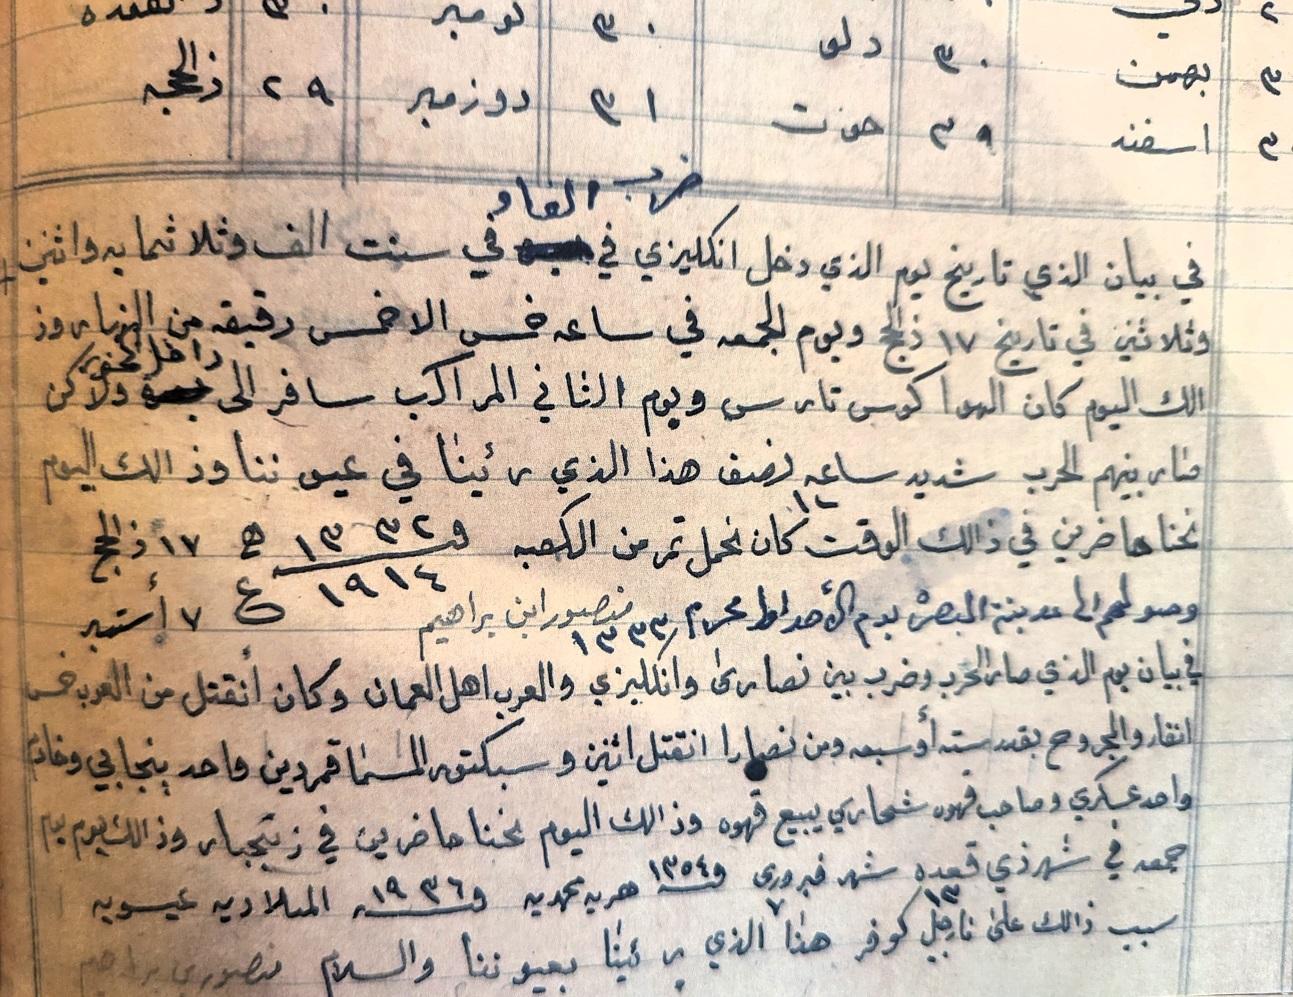 دي ٣٠ نومبر ٣٠ ذالقعده
بهمن ٣٠ دلو
اسفند ٢٩ حوت ٣١ دوزمبر ٢٩ ذالحجه
ضرب الفاو
في بيان الذي تاريخ يوم الذي دخل انكليزي في في سنت الف وثلاثمايه واثنين
وثلاثين في تاريخ ١٧ ذلحج ويوم الجمعه في ساعه خمس الا خمس دقيقه من النهار وذ
الك اليوم كان الهوا كوس تارس ويوم الثاني المراكب سافر الى داخل ولاكن
صار بينهم الحرب شديد ساعه نصف هذا الذي رئينا في عيو ننا وذ الك اليوم
نحنا حاضرين في ذالك الوقت كان نحمل تمر من الكصبه ١٣٣٢ ه ١٧ ذلحج
١٩١٤ ع
وصولهم الى مدينة البصره يوم الأحد محرم ١٣٣٣ منصور ابن براهيم ٧ أكتبر
في بيان يوم الذي صار الحرب وضرب بين نصارى وانكليزي والعرب اهل العمان وكان أنقتل من العرب خمس
انقار والمجروح بقدر سته أو سبعه ومن نصارا انقتل اثنين و سبكتور المسما قمردين واحد پنجابي وخادم
واحد عسكري وصاحب قهوه شحاري يبيع قهوه وذالك اليوم نحنا حاضرين في زنجبار وذالك يوم يوم
جمعه في شهر ذي قعده ١٣ شهر فبروري ٧ سنه ١٣٥٤ هريه محمديه و سنه ١٩٣٦ الميلاديه عيسويه
سبب ذالك على نارجيل كوفر هذا الذي رئينا بعيو ننا والسلام منصوري براهيم